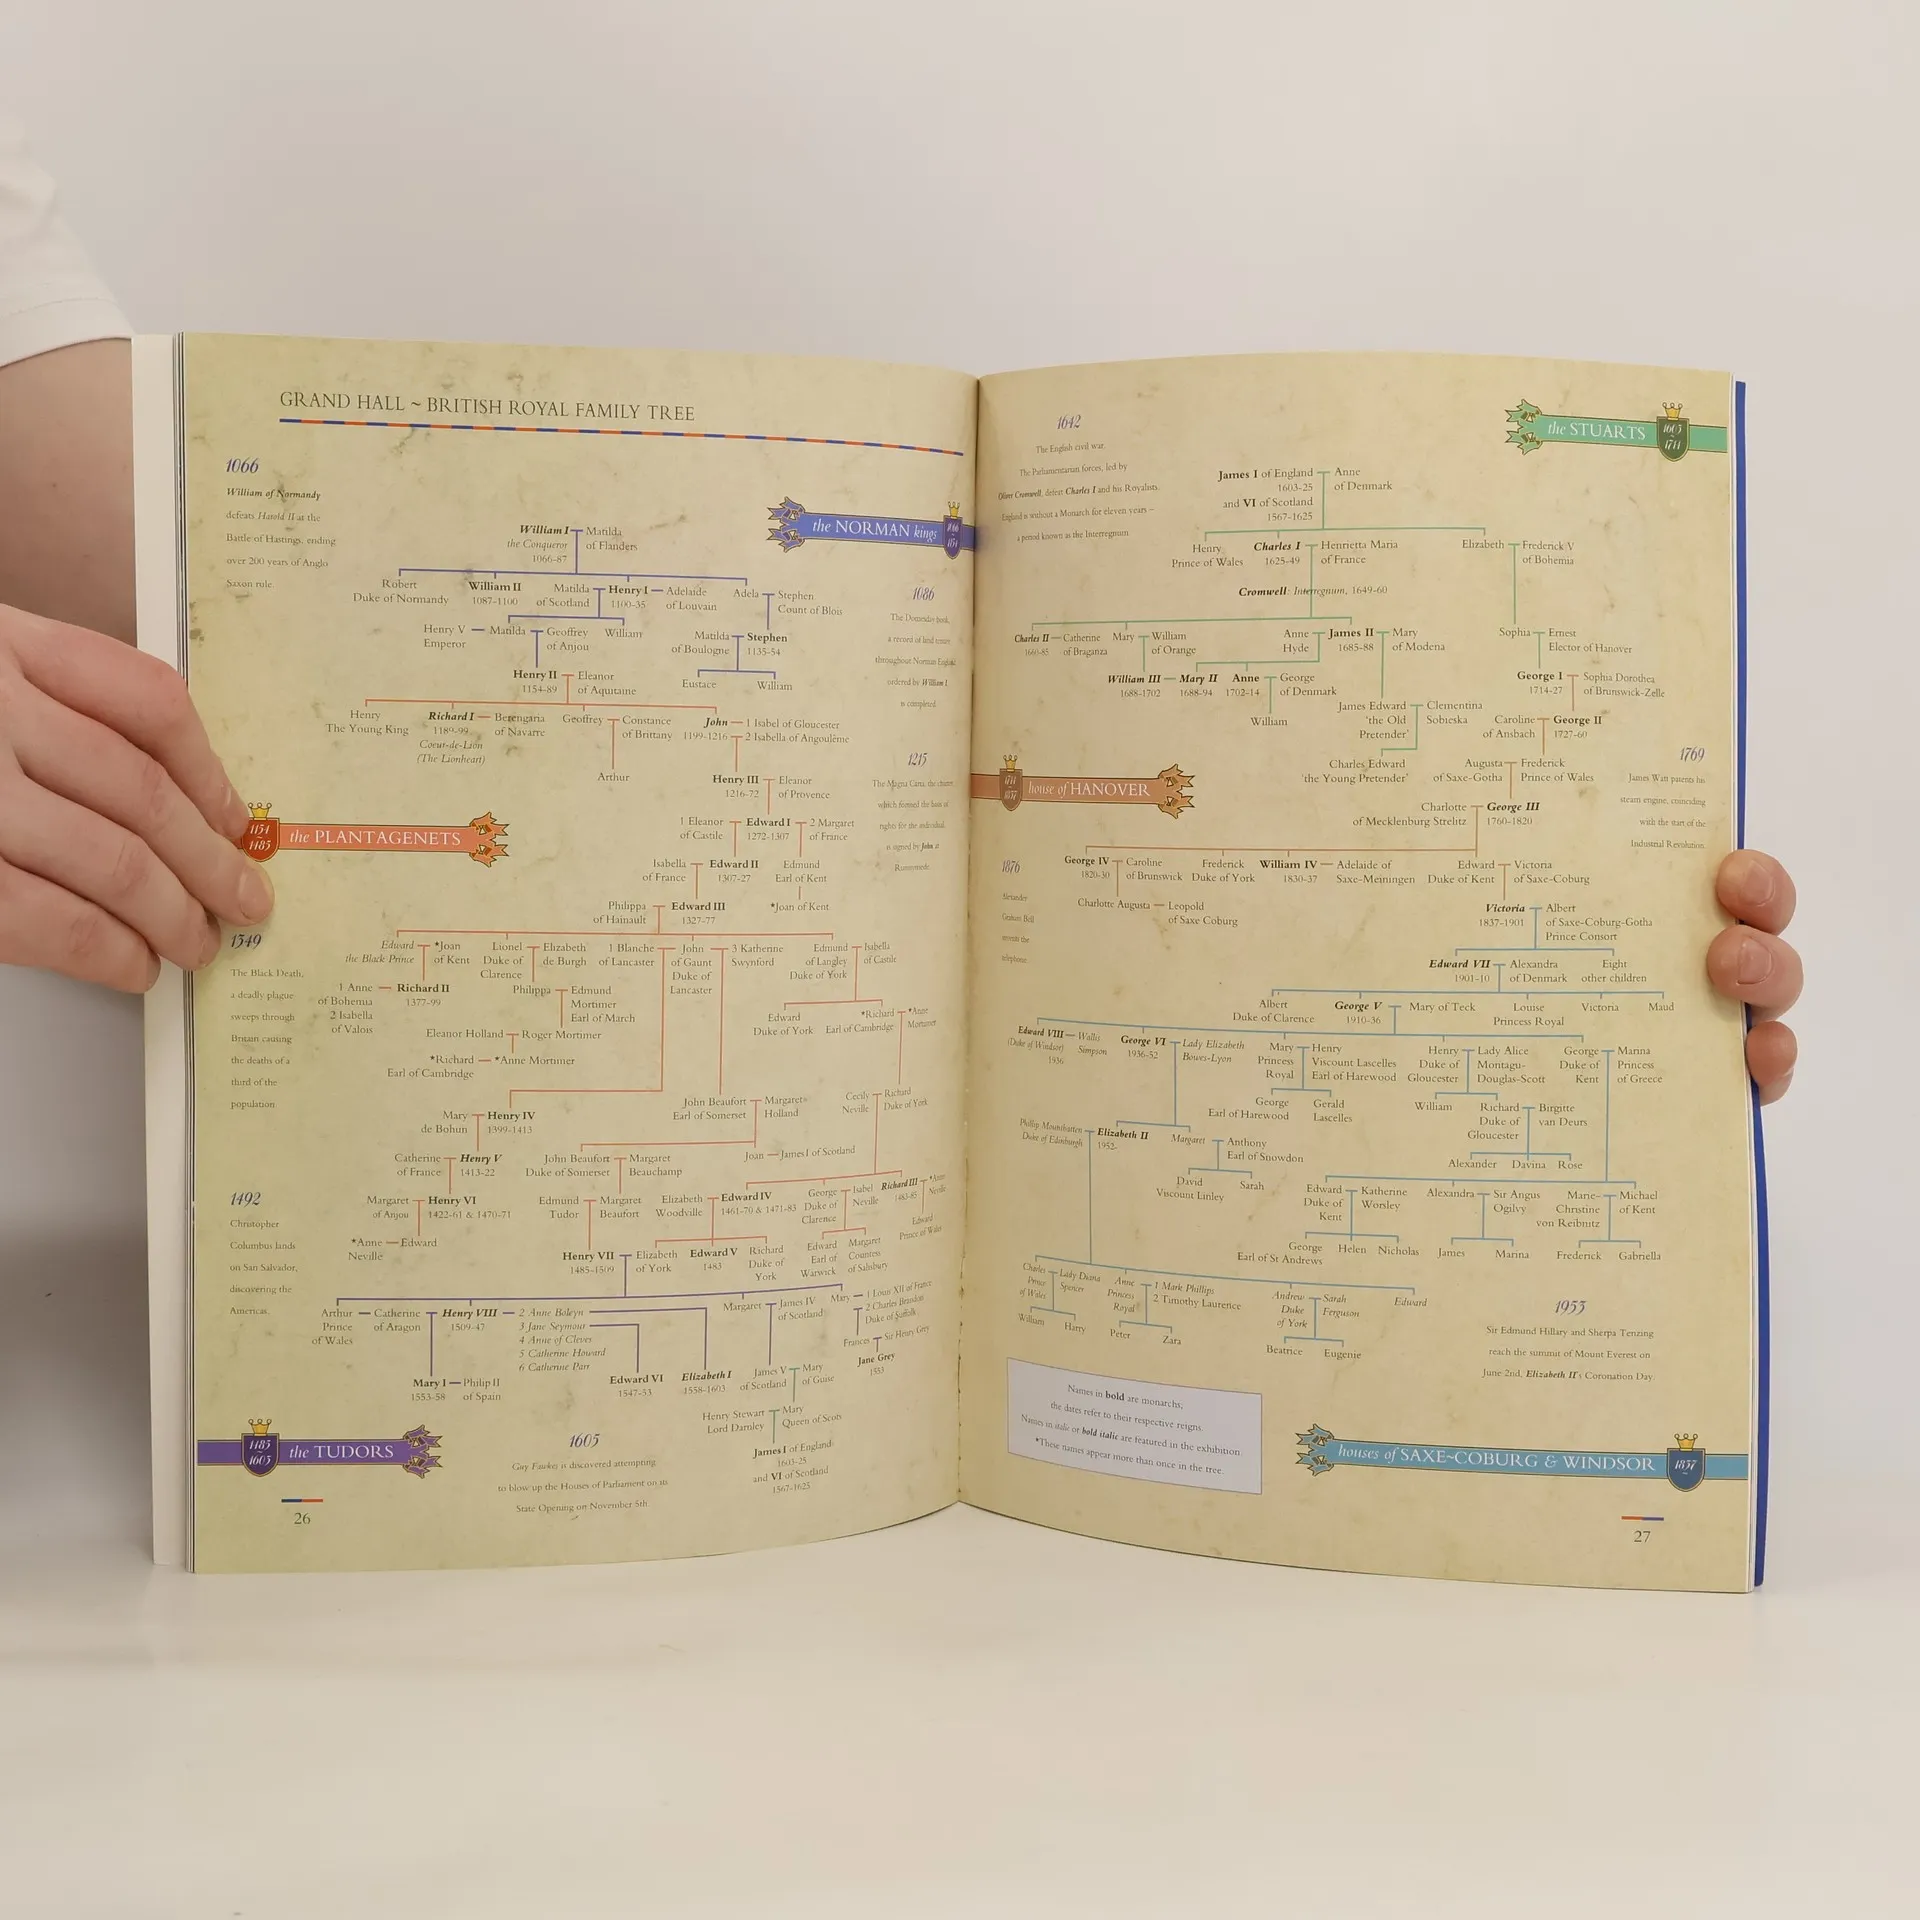 GRAND HALL ~ BRITISH ROYAL FAMILY TREE
1066
William of Normandy
defeats Harold II at the
Battle of Hastings, ending
over 200 years of Anglo
Saxon rule.
the NORMAN kings
1066
1154
William I
the Conqueror
1066-87
Matilda
of Flanders
Robert
Duke of Normandy
William II
1087-1100
Matilda
of Scotland
Henry I
1100-35
Adelaide
of Louvain
Adela
Stephen
Count of Blois
1086
The Domesday book,
a record of land tenure
throughout Norman England
ordered by William I,
is completed.
Henry V
Emperor
Matilda
Geoffrey
of Anjou
William
Matilda
of Boulogne
Stephen
1135-54
Henry II
1154-89
Eleanor
of Aquitaine
Eustace
William
Henry
The Young King
Richard I
1189-99
Coeur-de-Lion
(The Lionheart)
Berengaria
of Navarre
Geoffrey
Constance
of Brittany
John
1199-1216
1 Isabel of Gloucester
2 Isabella of Angoulème
Arthur
1215
The Magna Carta, the charter
which formed the basis of
rights for the individual,
is signed by John at
Runnymede.
Henry III
1216-72
Eleanor
of Provence
1154
~
1485
the PLANTAGENETS
1 Eleanor
of Castile
Edward I
1272-1307
2 Margaret
of France
Isabella
of France
Edward II
1307-27
Edmund
Earl of Kent
Philippa
of Hainault
Edward III
1327-77
*Joan of Kent
1349
The Black Death,
a deadly plague
sweeps through
Britain causing
the deaths of a
third of the
population
Edward
the Black Prince
*Joan
of Kent
Lionel
Duke of
Clarence
Elizabeth
de Burgh
1 Blanche
of Lancaster
John
of Gaunt
Duke of
Lancaster
3 Katherine
Swynford
Edmund
of Langley
Duke of York
Isabella
of Castile
1 Anne
of Bohemia
2 Isabella
of Valois
Richard II
1377-99
Philippa
Edmund
Mortimer
Earl of March
Edward
Duke of York
*Richard
Earl of Cambridge
*Anne
Mortimer
Eleanor Holland
Roger Mortimer
*Richard
Earl of Cambridge
*Anne Mortimer
Mary
de Bohun
Henry IV
1399-1413
John Beaufort
Earl of Somerset
Margaret
Holland
Cecily
Neville
Richard
Duke of York
Catherine
of France
Henry V
1413-22
John Beaufort
Duke of Somerset
Margaret
Beauchamp
Joan
James I of Scotland
1492
Christopher
Columbus lands
on San Salvador,
discovering the
Americas.
Margaret
of Anjou
Henry VI
1422-61 & 1470-71
Edmund
Tudor
Margaret
Beaufort
Elizabeth
Woodville
Edward IV
1461-70 & 1471-83
George
Duke of
Clarence
Isabel
Neville
Richard III
1483-85
*Anne
Neville
*Anne
Neville
Edward
Henry VII
1485-1509
Elizabeth
of York
Edward V
1483
Richard
Duke of
York
Edward
Earl of
Warwick
Margaret
Countess
of Salisbury
Edward
Prince of Wales
Arthur
Prince
of Wales
Catherine
of Aragon
Henry VIII
1509-47
2 Anne Boleyn
3 Jane Seymour
4 Anne of Cleves
5 Catherine Howard
6 Catherine Parr
Margaret
James IV
of Scotland
Mary
1 Louis XII of France
2 Charles Brandon
Duke of Suffolk
Frances
Sir Henry Grey
Jane Grey
1553
Mary I
1553-58
Philip II
of Spain
Edward VI
1547-53
Elizabeth I
1558-1603
James V
of Scotland
Mary
of Guise
Henry Stewart
Lord Darnley
Mary
Queen of Scots
James I of England
1603-25
and VI of Scotland
1567-1625
1485
1603
the TUDORS
1605
Guy Fawkes is discovered attempting
to blow up the Houses of Parliament on its
State Opening on November 5th.
26
1642
The English civil war.
The Parliamentarian forces, led by
Oliver Cromwell, defeat Charles I and his Royalists.
England is without a Monarch for eleven years –
a period known as the Interregnum.
the STUARTS
1603
~
1714
James I of England
1603-25
and VI of Scotland
1567-1625
Anne
of Denmark
Henry
Prince of Wales
Charles I
1625-49
Henrietta Maria
of France
Elizabeth
Frederick V
of Bohemia
Cromwell: Interregnum, 1649-60
Charles II
1660-85
Catherine
of Braganza
Mary
William
of Orange
Anne
Hyde
James II
1685-88
Mary
of Modena
Sophia
Ernest
Elector of Hanover
William III
1688-1702
Mary II
1688-94
Anne
1702-14
George
of Denmark
William
George I
1714-27
Sophia Dorothea
of Brunswick-Zelle
James Edward
'the Old
Pretender'
Clementina
Sobieska
Caroline
of Ansbach
George II
1727-60
Charles Edward
'the Young Pretender'
Augusta
of Saxe-Gotha
Frederick
Prince of Wales
1769
James Watt patents his
steam engine, coinciding
with the start of the
Industrial Revolution.
1714
~
1837
house of HANOVER
Charlotte
of Mecklenburg Strelitz
George III
1760-1820
1876
Alexander
Graham Bell
invents the
telephone
George IV
1820-30
Caroline
of Brunswick
Frederick
Duke of York
William IV
1830-37
Adelaide of
Saxe-Meiningen
Edward
Duke of Kent
Victoria
of Saxe-Coburg
Charlotte Augusta
Leopold
of Saxe Coburg
Victoria
1837-1901
Albert
of Saxe-Coburg-Gotha
Prince Consort
Edward VII
1901-10
Alexandra
of Denmark
Eight
other children
Albert
Duke of Clarence
George V
1910-36
Mary of Teck
Louise
Princess Royal
Victoria
Maud
Edward VIII
(Duke of Windsor)
1936
Wallis
Simpson
George VI
1936-52
Lady Elizabeth
Bowes-Lyon
Mary
Princess
Royal
Henry
Viscount Lascelles
Earl of Harewood
Henry
Duke of
Gloucester
Lady Alice
Montagu-
Douglas-Scott
George
Duke of
Kent
Marina
Princess
of Greece
George
Earl of Harewood
Gerald
Lascelles
William
Richard
Duke of
Gloucester
Birgitte
van Deurs
Phillip Mountbatten
Duke of Edinburgh
Elizabeth II
1952-
Margaret
Anthony
Earl of Snowdon
Alexander
Davina
Rose
David
Viscount Linley
Sarah
Edward
Duke of
Kent
Katherine
Worsley
Alexandra
Sir Angus
Ogilvy
Marie-
Christine
von Reibnitz
Michael
of Kent
George
Earl of St Andrews
Helen
Nicholas
James
Marina
Frederick
Gabriella
Charles
Prince
of Wales
Lady Diana
Spencer
Anne
Princess
Royal
1 Mark Phillips
2 Timothy Laurence
Andrew
Duke
of York
Sarah
Ferguson
Edward
William
Harry
Peter
Zara
Beatrice
Eugenie
1953
Sir Edmund Hillary and Sherpa Tenzing
reach the summit of Mount Everest on
June 2nd, Elizabeth II's Coronation Day.
Names in bold are monarchs;
the dates refer to their respective reigns.
Names in italic or bold italic are featured in the exhibition
*These names appear more than once in the tree.
houses of SAXE~COBURG & WINDSOR
1837
~
27